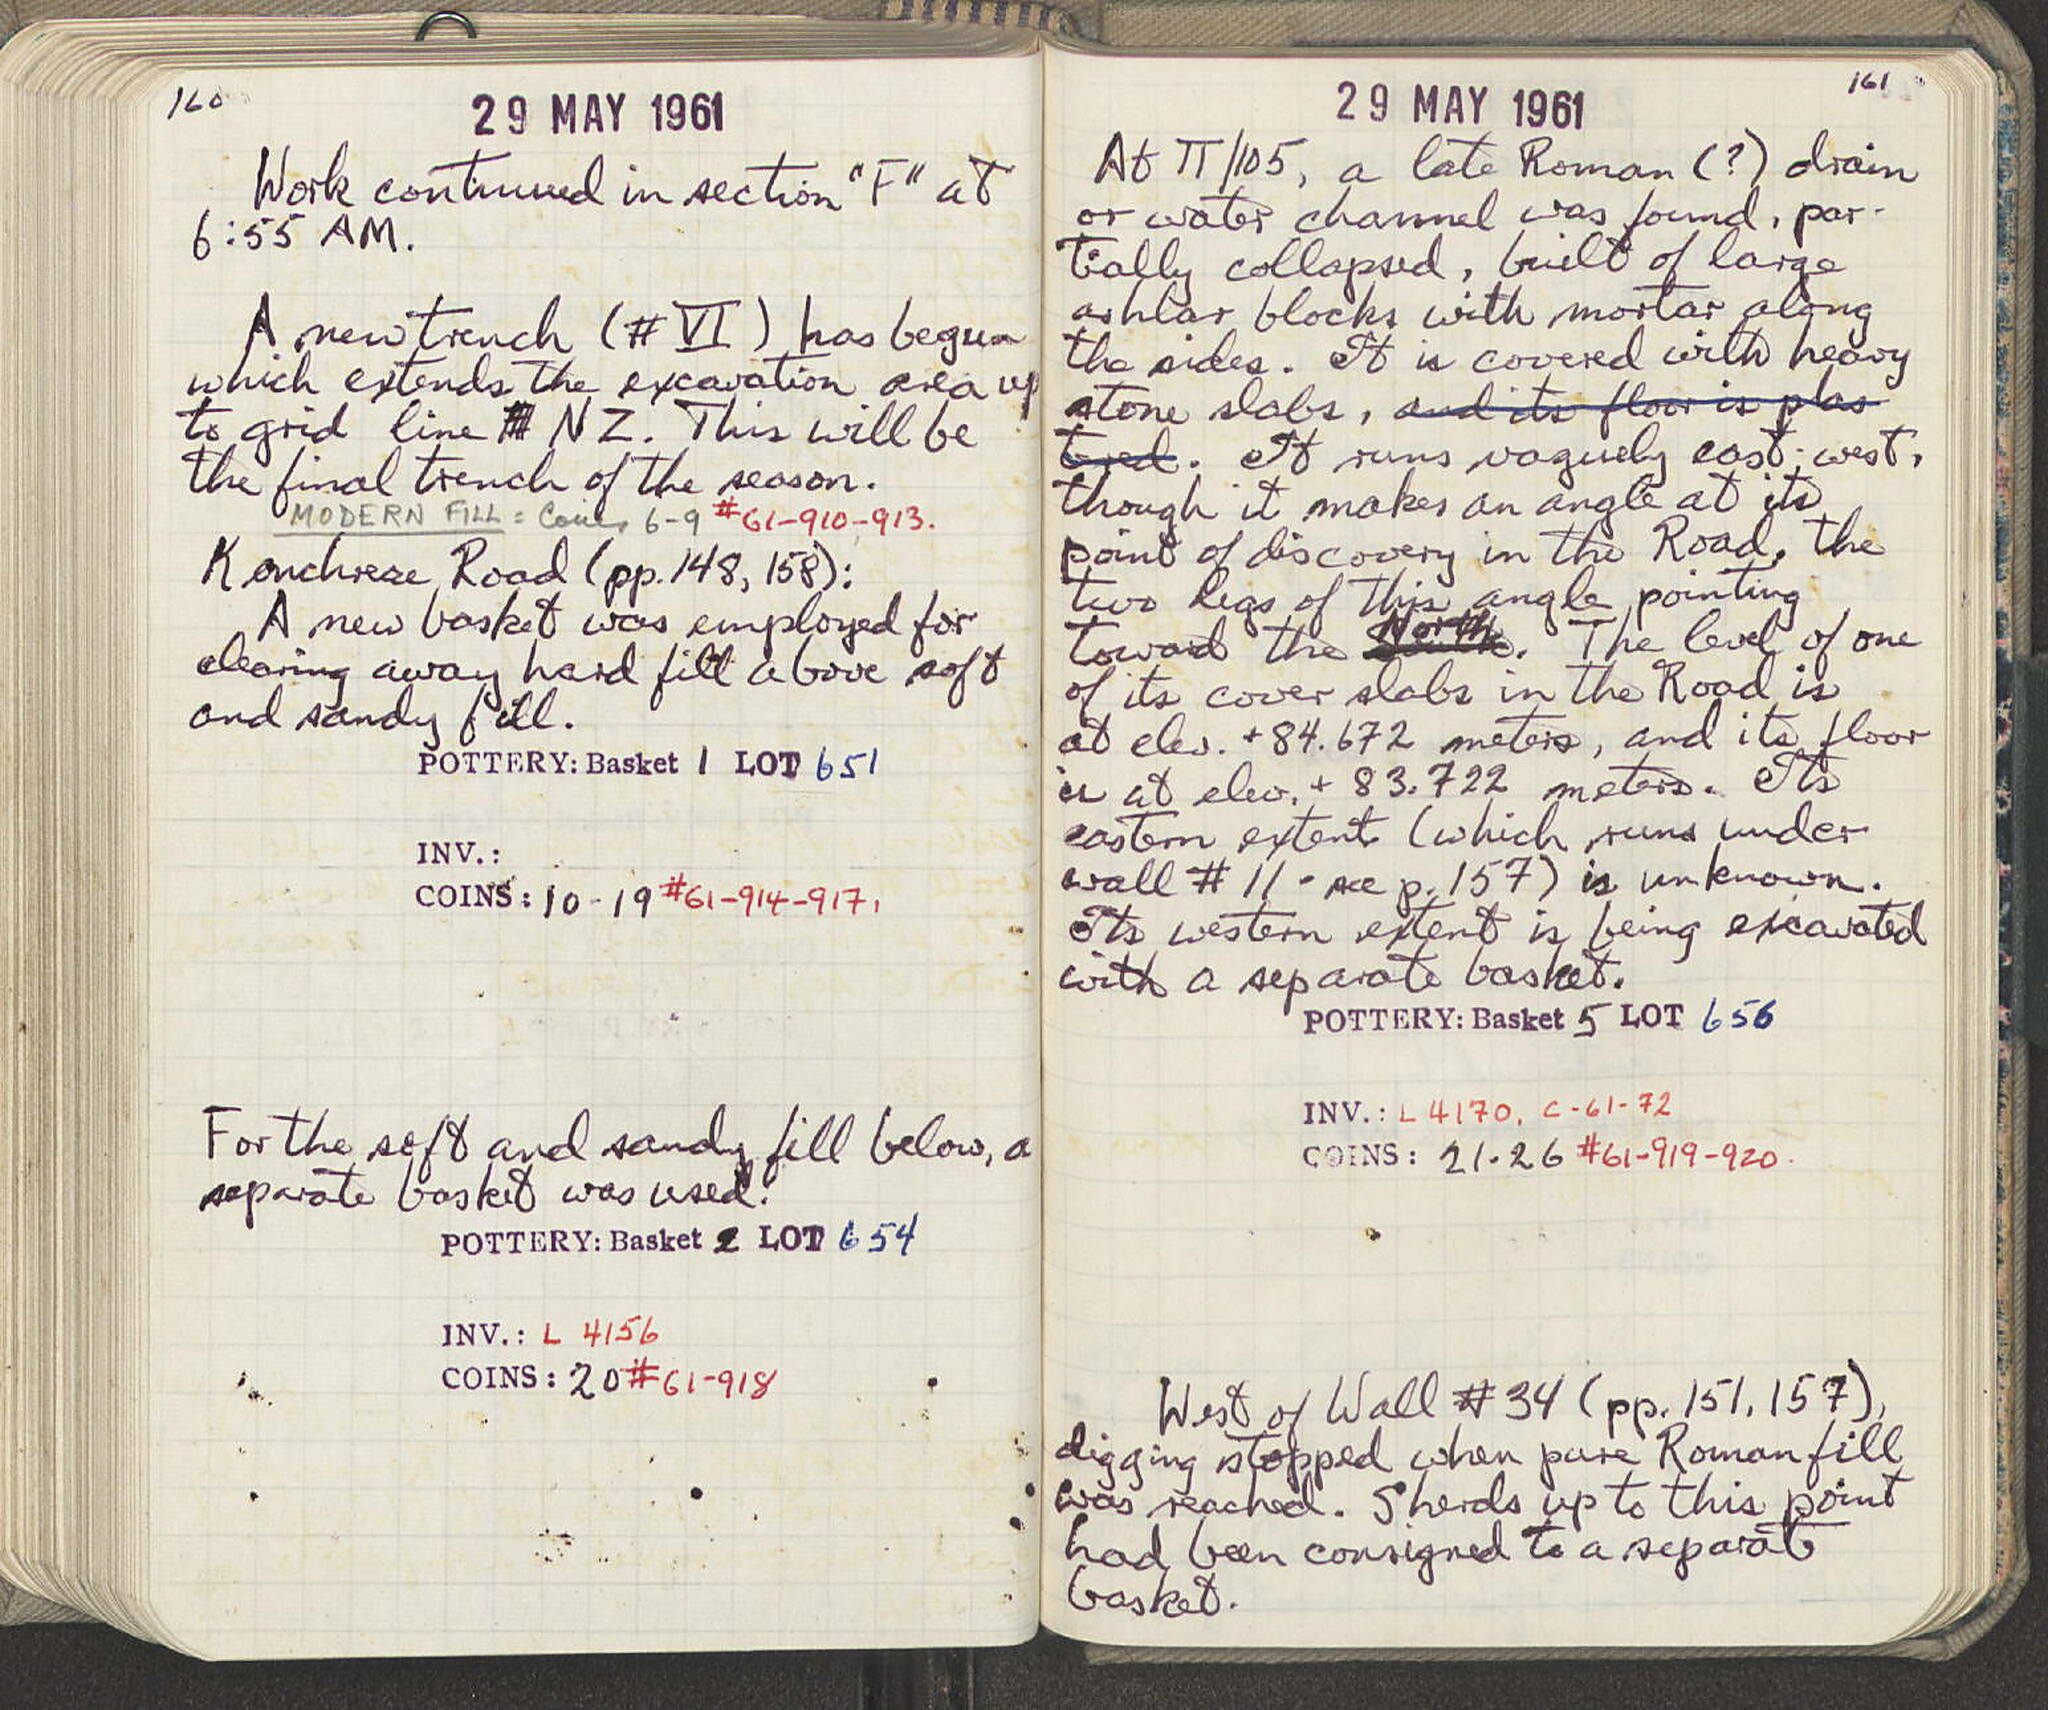 160
29 MAY 1961
Work continued in section "F" at
6:55 AM.
A new trench (# VI) has begun
which extends the excavation area up
to grid line # NZ. This will be
the final trench of the season.
MODERN FILL = Coins 6-9 #61-910-913.
Kenchreae Road (pp. 148, 158):
A new basket was employed for
clearing away hard fill above soft
and sandy fill.
POTTERY: Basket 1 LOT 651
INV.:
COINS: 10-19 #61-914-917,
For the soft and sandy fill below, a
separate basket was used.
POTTERY: Basket 2 LOT 654
INV.: L 4156
COINS: 20 #61-918
161
29 MAY 1961
At Π/105, a late Roman (?) drain
or water channel was found, par-
tially collapsed, built of large
ashlar blocks with mortar along
the sides. It is covered with heavy
stone slabs, and its floor is plas
tered. It runs vaguely east-west,
though it makes an angle at its
point of discovery in the Road, the
two legs of this angle pointing
toward the North. The level of one
of its cover slabs in the Road is
at elev. +84.672 meters, and its floor
is at elev. +83.722 meters. Its
eastern extent (which runs under
wall #11 - see p. 157) is unknown.
Its western extent is being excavated
with a separate basket.
POTTERY: Basket 5 LOT 656
INV.: L 4170, C-61-72
COINS: 21-26 #61-919-920.
West of Wall #34 (pp. 151, 157),
digging stopped when pure Roman fill
was reached. Sherds up to this point
had been consigned to a separate
basket.